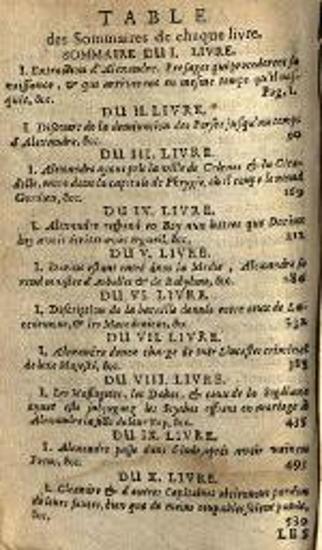 TABLE
des Sommaires de chaque livre.
SOMMAIRE DU I. LIVRE.
I. Extraction d'Alexandre. Presages qui precederent sa
naissance, & qui arriverent en mesme temps qu'il nas-
quit, &c. Pag. 1.
DU II. LIVRE.
I. Discours de la domination des Perses jusqu'au temps
d'Alexandre, &c. 90
DU III. LIVRE.
I. Alexandre ayant pris la ville de & la Cita-
delle, entre dans la capitale de Phrygie, où il coupe le nœud
Gordien, &c. 169
DU IX. LIVRE.
I. Alexandre respond en Roy aux lettres que Darius
luy avoit &c. 212
DU V. LIVRE.
I. Darius estant entré dans la Medie, Alexandre se
rend maistre d'Arbelles & de Babylone, &c. 286
DU VI. LIVRE.
I. Description de la bataille donnée entre ceux de Lac-
& les Macedoniens, &c. 332
DU VII. LIVRE.
I. Alexandre donne charge de tuer Lincestes criminel
de leze Majesté, &c.
DU VIII. LIVRE.
I. Les Massagetes, les Dahes, & ceux de la Sogdiane
ayant esté subjuguez les Scythes offrent en mariage à
Alexandre la fille de leur Roy, &c. 435
DU IX. LIVRE.
I. Alexandre passe dans l'Inde, après avoir vaincu
Porus, &c. 495
DU X. LIVRE.
I. Cleandre & d'autres Capitaines obtiennent pardon
de leurs fautes, bien que de moins coupables soient punis,
&c. 539
LES